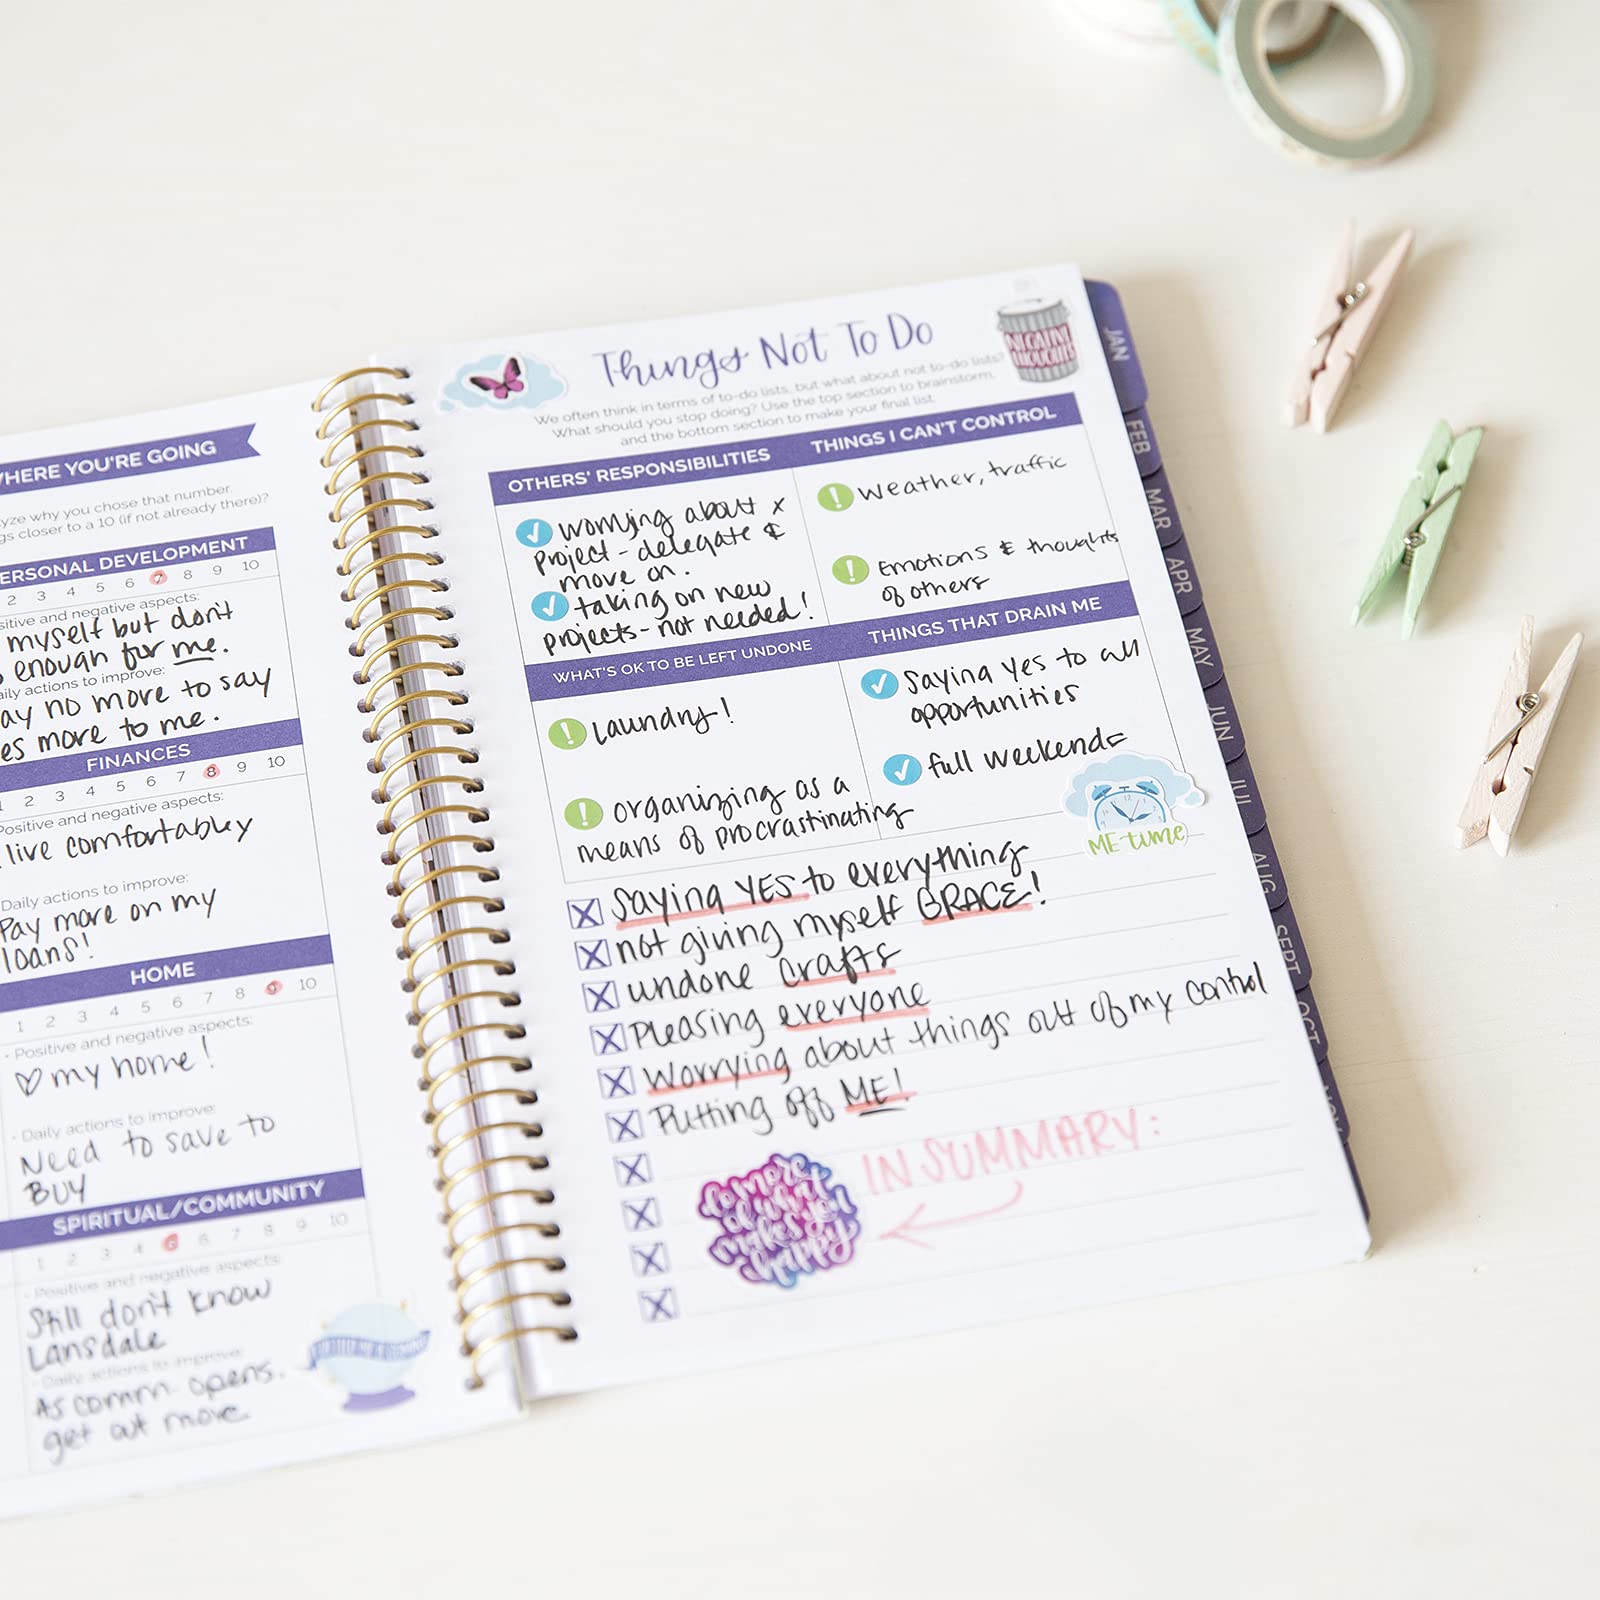 WHERE YOU'RE GOING
yze why you chose that number.
gs closer to a 10 (if not already there)?
PERSONAL DEVELOPMENT
2 3 4 5 6 7 8 9 10
sitive and negative aspects:
myself but don't
enough for me.
aily actions to improve:
ay no more to say
es more to me.
FINANCES
1 2 3 4 5 6 7 8 9 10
Positive and negative aspects:
live comfortabley
Daily actions to improve:
Pay more on my
loans!
HOME
1 2 3 4 5 6 7 8 9 10
• Positive and negative aspects:
♡ my home!
• Daily actions to improve:
Need to save to
BUY
SPIRITUAL/COMMUNITY
1 2 3 4 5 6 7 8 9 10
• Positive and negative aspects:
Still don't know
Lansdale
• Daily actions to improve:
As comm. opens.
get out more.
Things Not To Do
NEGATIVE
THOUGHTS
We often think in terms of to-do lists, but what about not to-do lists?
What should you stop doing? Use the top section to brainstorm,
and the bottom section to make your final list.
OTHERS' RESPONSIBILITIES
worrying about x
project - delegate &
move on.
taking on new
projects - not needed!
THINGS I CAN'T CONTROL
weather, traffic
Emotions & thoughts
of others
WHAT'S OK TO BE LEFT UNDONE
laundry!
organizing as a
means of procrastinating
THINGS THAT DRAIN ME
Saying yes to all
opportunities
full weekends
ME time
Saying YES to everything
not giving myself GRACE!
undone crafts
Pleasing everyone
Worrying about things out of my control
Putting off ME!
IN SUMMARY:
do more
of what
makes you
happy
JAN
FEB
MAR
APR
MAY
JUN
JUL
AUG
SEPT
OCT